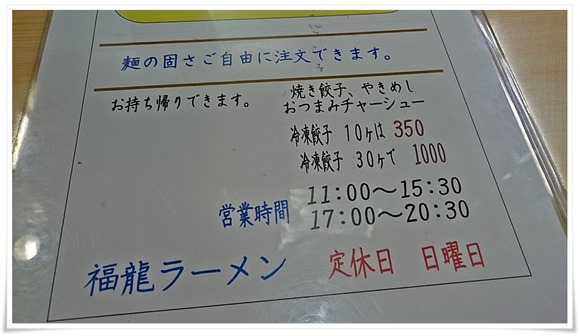 麺の固さご自由に注文できます。
お持ち帰りできます。 焼き餃子、やきめし
おつまみチャーシュー
冷凍餃子 10ヶは 350
冷凍餃子 30ヶで 1000
営業時間 11:00～15:30
17:00～20:30
福龍ラーメン 定休日 日曜日